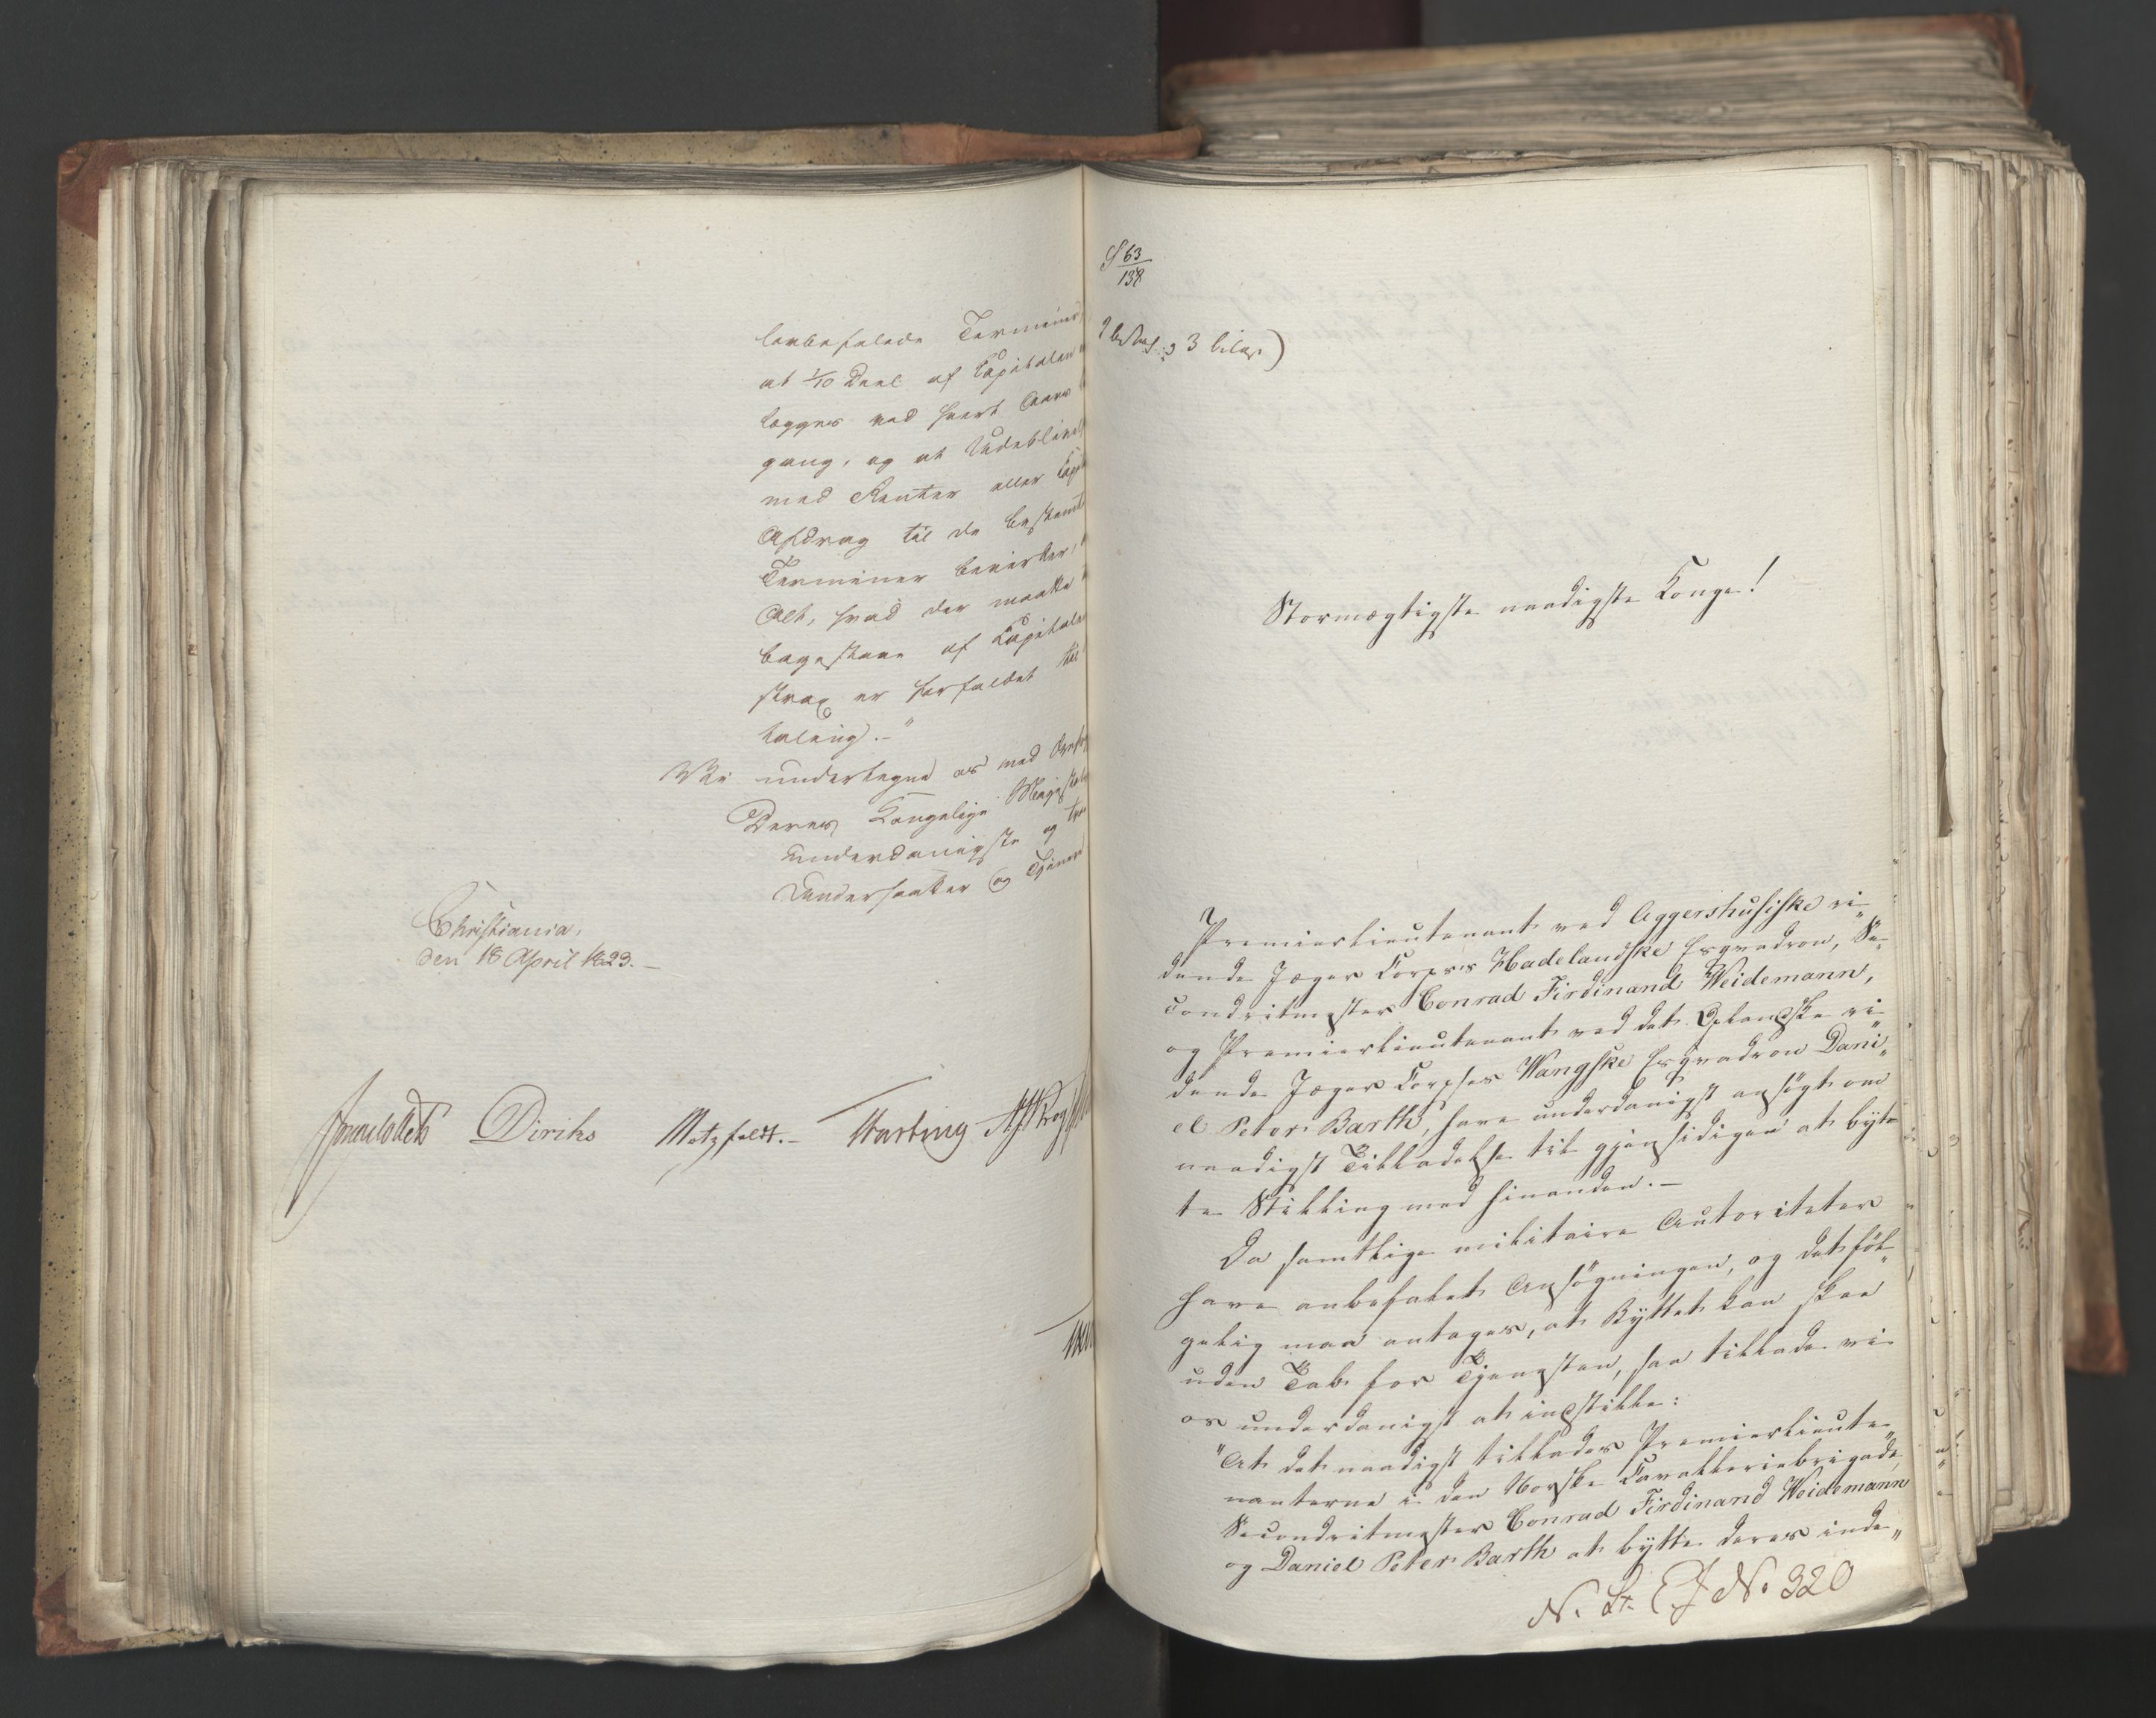 lovbefalede Terminer,
at 1/10 Deel af Capitalen
lægges ved hvert Aars
gang, og at Udeblivel
med Renter eller Cap
Afdrag til de bestemt
Terminer bevirker,
Alt, hvad der maatte
bagestaae af Capitale
strax er forfaldet til
taling.-"
Vi undertegne os med
Deres Kongelige Majestæt
underdanigste og
Undersaatter og Tjenere
Christiania,
den 18 April 1823.-
Diriks Motzfeldt.- Harting
S 63/138
3 bilag)
Stormægtigste naadigste Konge!
Premierlieutenant ved Aggershusiske ri„
dende Jæger Corpses Hadelandske Esqvadron, Se„
condritmester Conrad Firdinand Weidemann,
og Premierlieutenant ved det Oplandske ri„
dende Jæger Corpses Wangske Esqvadron Dani„
el Peter Barth, have underdanigst ansögt om
naadigst Tilladelse til gjensidigen at byt„
te Stilling med hinanden.-
Da samtlige militaire Autoriteter
have anbefalet Ansögningen, og det föl„
gelig maa antages, at Byttet kan skee
uden Tab for Tjenesten, saa tillade vi
os underdanigst at indstille:
"At det naadigst tillades Premierlieute„
nanterne i den Norske Cavalleriebrigade,
Secondritmester Conrad Firdinand Weidemann
og Daniel Peter Barth at bytte deres inde„
N. St. E J No 320